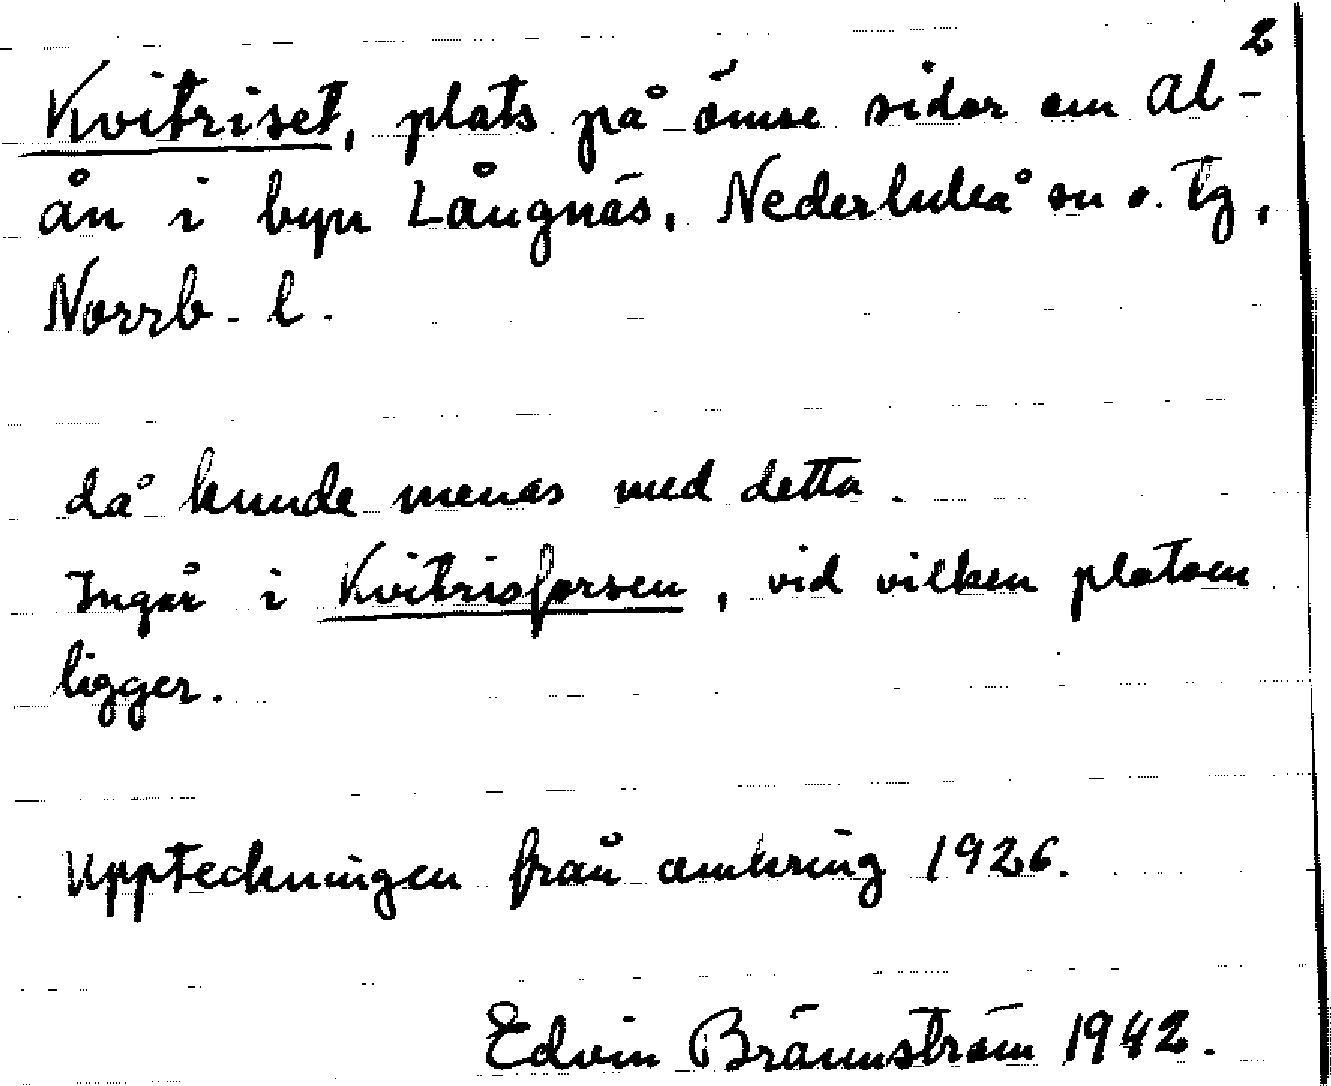 2
Kvitriset, plats på ömse sidor om Al-
ån i byn Långnäs, Nederluleå sn o. tg,
Norrb. l.
då kunde menas med detta.
Ingår i Kvitrisforsen, vid vilken platsen
ligger.
Uppteckningen från omkring 1926.
Edvin Brännström 1942.